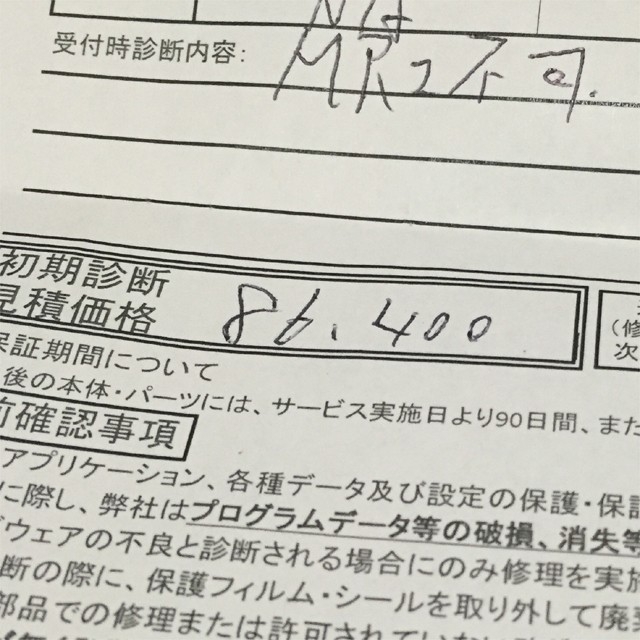 受付時診断内容:
MRI不可.
初期診断
見積価格
86,400
(修
次
保証期間について
後の本体・パーツには、サービス実施日より90日間、また
前確認事項
アプリケーション、各種データ及び設定の保護・保証
に際し、弊社はプログラムデータ等の破損、消失等
ウェアの不良と診断される場合にのみ修理を実施
断の際に、保護フィルム・シールを取り外して廃
部品での修理または許可されていない